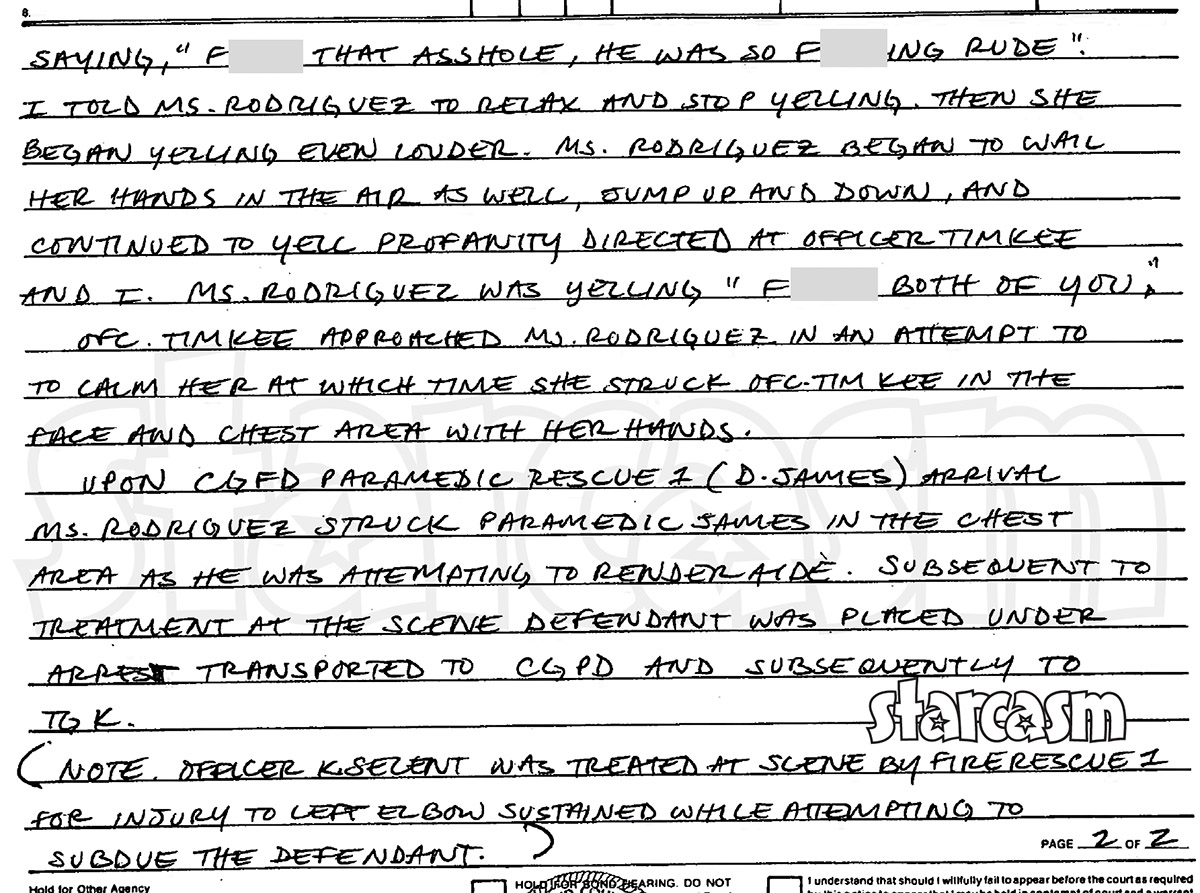 8.
SAYING, "F THAT ASSHOLE, HE WAS SO F ING RUDE".
I TOLD MS. RODRIGUEZ TO RELAX AND STOP YELLING. THEN SHE
BEGAN YELLING EVEN LOUDER. MS. RODRIGUEZ BEGAN TO WAIL
HER HANDS IN THE AIR AS WELL, JUMP UP AND DOWN, AND
CONTINUED TO YELL PROFANITY DIRECTED AT OFFICER TIMKEE
AND I. MS. RODRIGUEZ WAS YELLING "F BOTH OF YOU,"
OFC. TIMKEE APPROACHED MS. RODRIGUEZ IN AN ATTEMPT TO
TO CALM HER AT WHICH TIME SHE STRUCK OFC. TIMKEE IN THE
FACE AND CHEST AREA WITH HER HANDS.
UPON CGFD PARAMEDIC RESCUE 1 (D. JAMES) ARRIVAL
MS. RODRIGUEZ STRUCK PARAMEDIC JAMES IN THE CHEST
AREA AS HE WAS ATTEMPTING TO RENDER AIDE. SUBSEQUENT TO
TREATMENT AT THE SCENE DEFENDANT WAS PLACED UNDER
ARREST TRANSPORTED TO CGPD AND SUBSEQUENTLY TO
TGK.
starcasm
(NOTE. OFFICER K. SELENT WAS TREATED AT SCENE BY FIRE RESCUE 1
FOR INJURY TO LEFT ELBOW SUSTAINED WHILE ATTEMPTING TO
SUBDUE THE DEFENDANT.)
PAGE 2 OF 2
Hold for Other Agency
HOLD FOR BOND HEARING. DO NOT
I understand that should I willfully fail to appear before the court as required